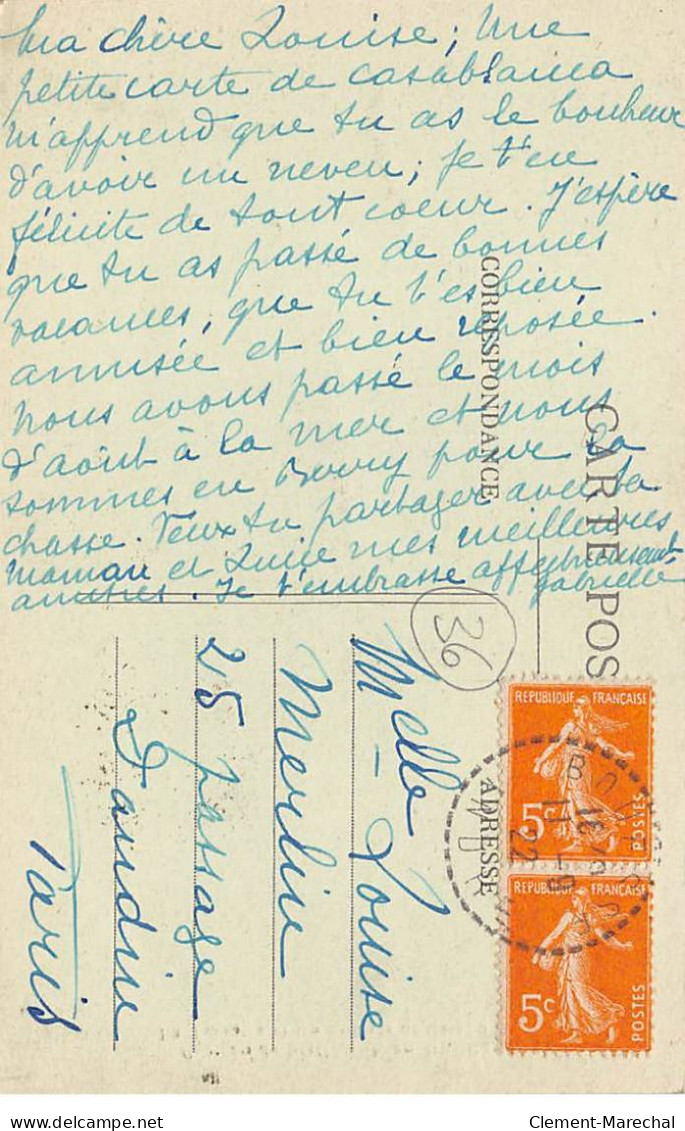 Ma chère Louise, Une
petite carte de Casablanca
m'apprend que tu as le bonheur
d'avoir un neveu, je t'en
félicite de tout coeur. J'espère
que tu as passé de bonnes
vacances, que tu t'es bien
amusée et bien reposée.
Nous avons passé le mois
d'août à la mer et nous
sommes en Berry pour la
chasse. Veux tu partager avec ta
Maman et mes meilleures
amitiés. Je t'embrasse affectueusement
Gabrielle
CARTE POS
CORRESPONDANCE
ADRESSE
36
Melle Louise
Merlin
25 passage
Dandin
Paris
REPUBLIQUE FRANÇAISE
5c POSTES
REPUBLIQUE FRANÇAISE
5c POSTES
22
Clement-Marechal